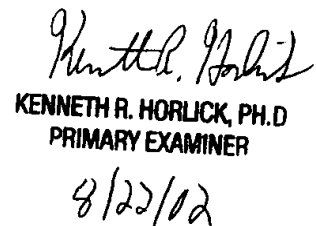 Kenneth R. Horlick
KENNETH R. HORLICK, PH.D
PRIMARY EXAMINER
8/22/02